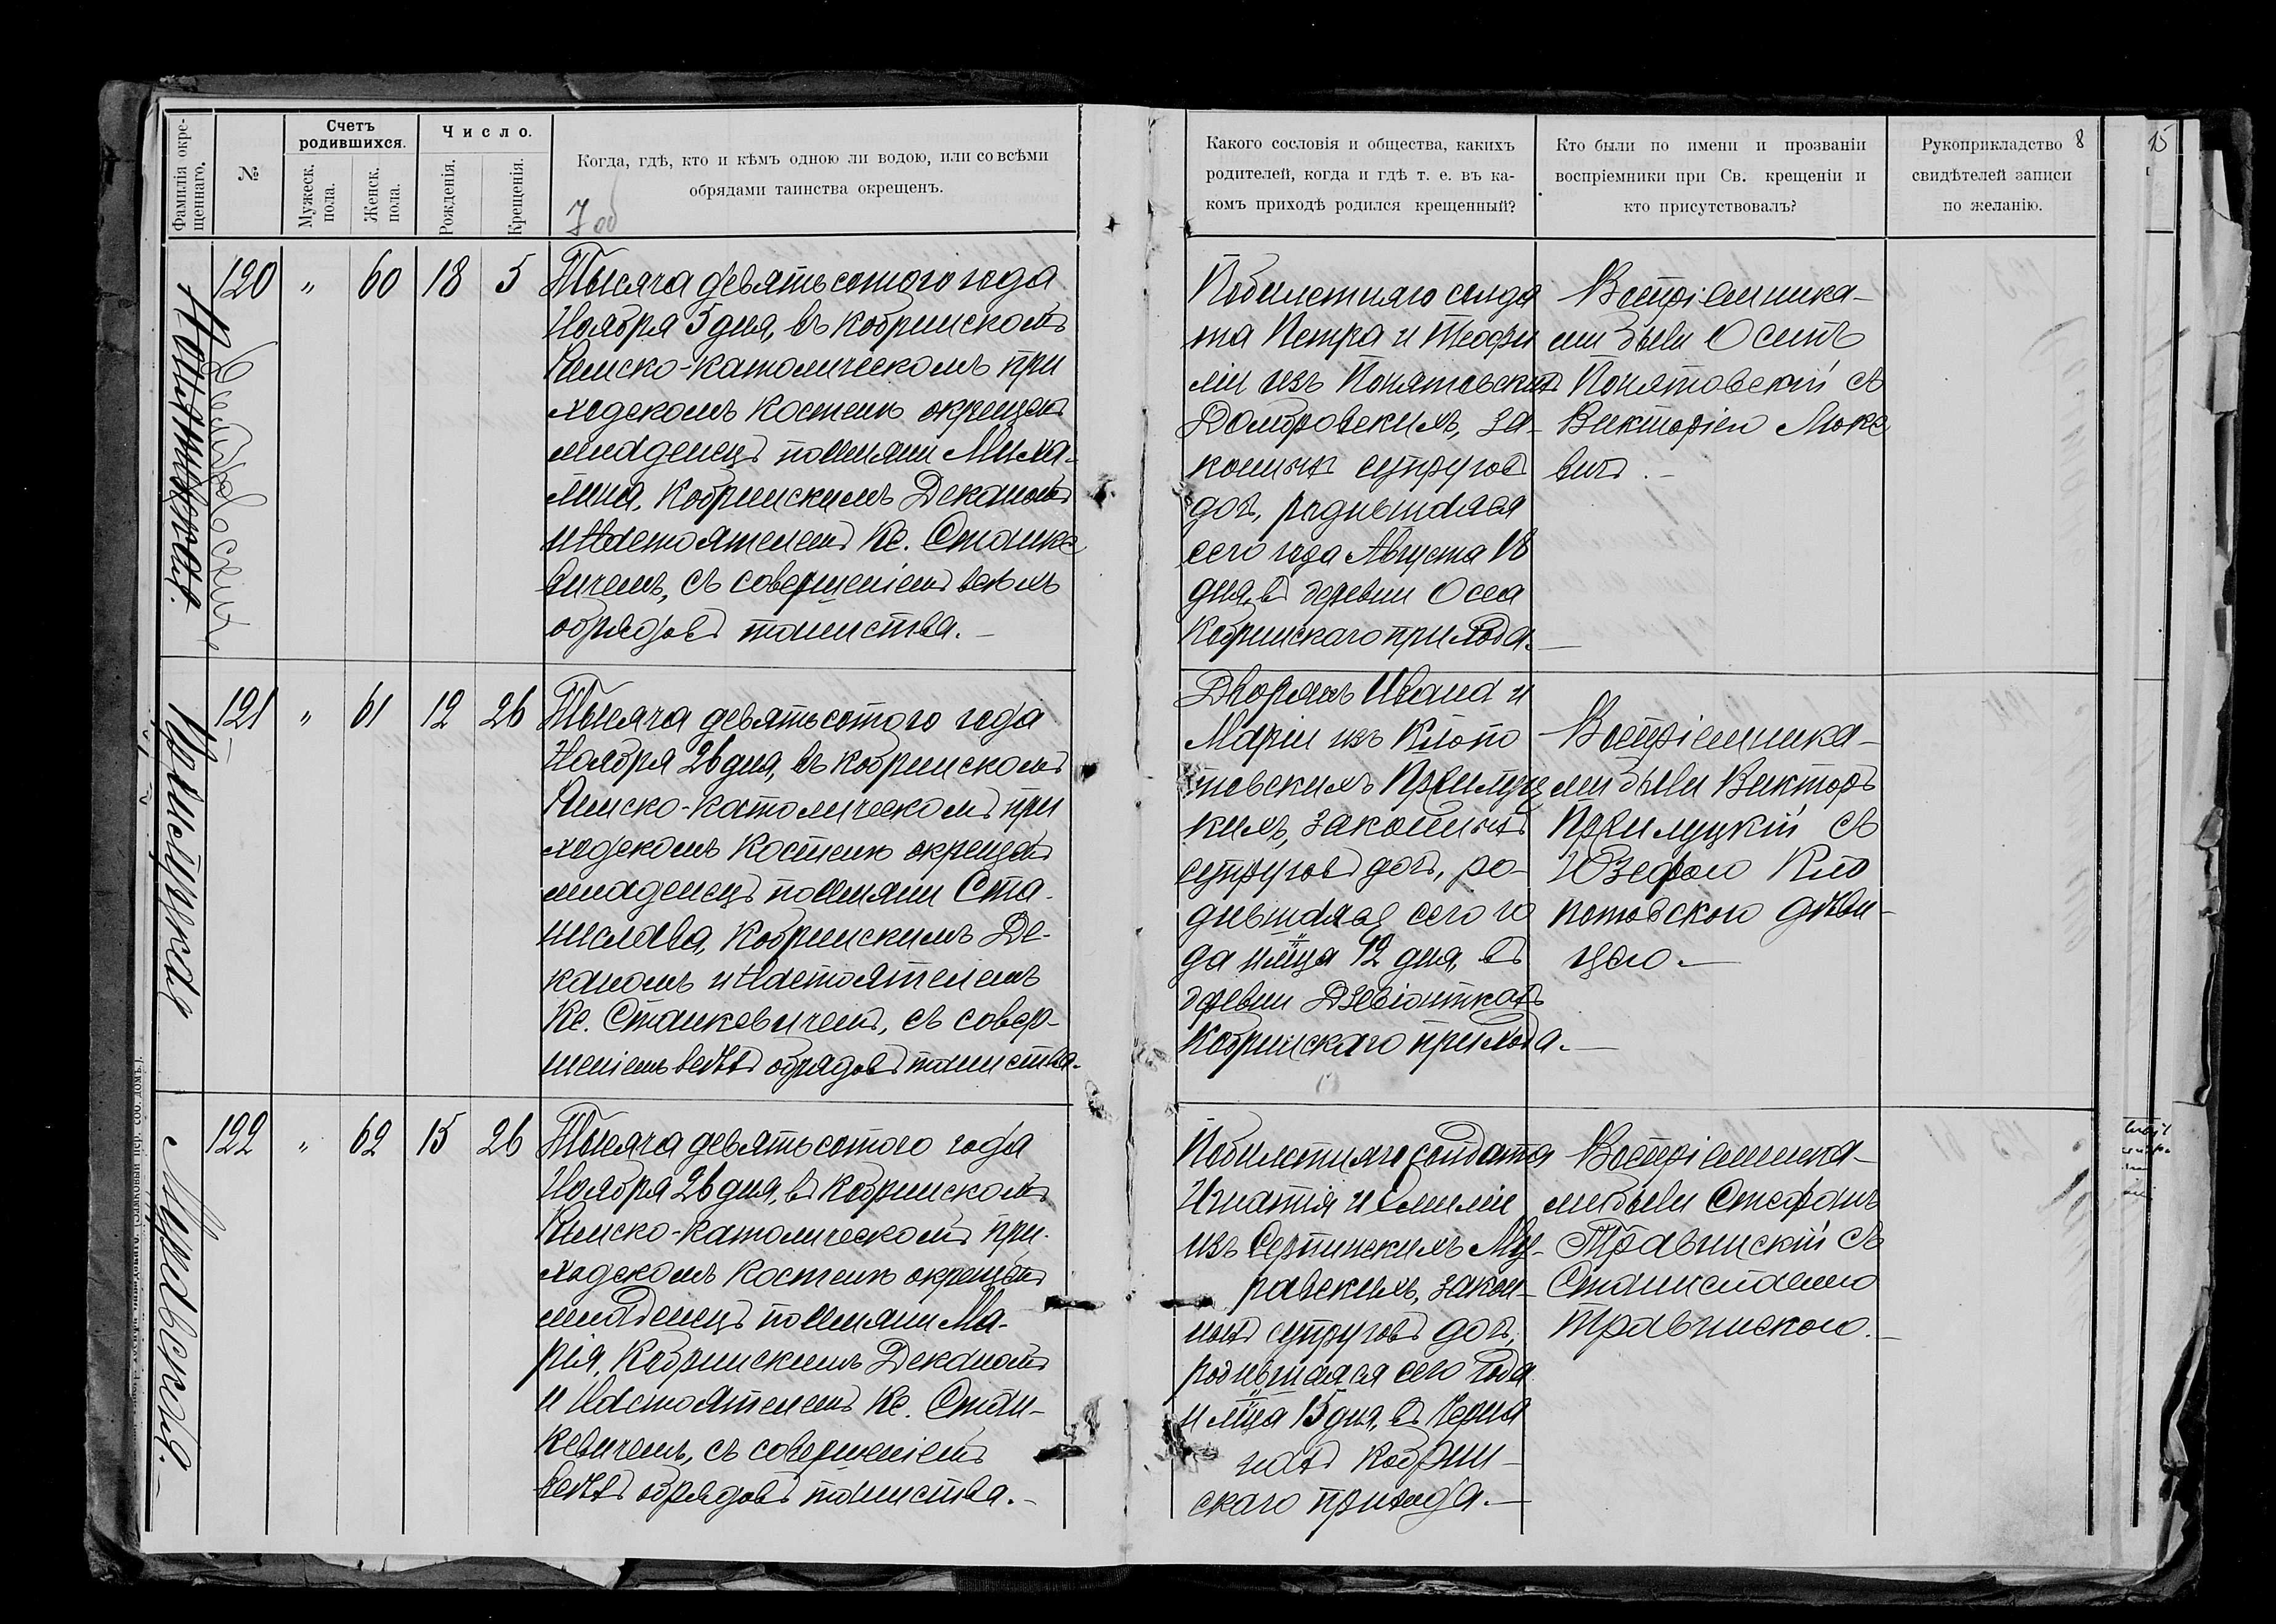 Фамилія окре-
щеннаго.
№
Счетъ
родившихся.
Мужеск.
пола.
Женск.
пола.
Число.
Рожденія.
Крещенія.
Когда, гдѣ, кто и кѣмъ одною ли водою, или со всѣми
обрядами таинства окрещенъ.
Какого сословія и общества, какихъ
родителей, когда и гдѣ т. е. въ ка-
комъ приходѣ родился крещенный?
Кто были по имени и прозваніи
воспріемники при Св. крещеніи и
кто присутствовалъ?
Рукоприкладство
свидѣтелей записи
по желанію.
8
15
120 " 60 18 5
Тысяча девятьсотого года
Ноября 5 дня, въ Кобринскомъ
Римско-Католическомъ при
ходскомъ костелѣ окрещенъ
младенецъ по имени Миха-
лина, Кобринскимъ Деканомъ
и Настоятелемъ Кс. Станке
вичемъ, съ совершеніемъ всѣхъ
обрядовъ таинства.
Побилетнаго солда
та Петра и Теофи
ліи изъ Понятовскихъ
Домбровскихъ, за-
конныхъ супруговъ
дочь, родившаяся
сего года Августа 18
дня, въ деревни Осса
Кобринскаго прихода.
Воспріемника-
ми были Осипъ
Понятовскій съ
Викторіею Моке
вичъ.
Прилуцкая
121 " 61 12 26
Тысяча девятьсотого года
Ноября 26 дня, въ Кобринскомъ
Римско-Католическомъ при
ходскомъ костелѣ окрещенъ
младенецъ по имени Ста-
нислава, Кобринскимъ Де-
каномъ и Настоятелемъ
Кс. Станкевичемъ, съ совер-
шеніемъ всѣхъ обрядовъ таинства.
Дворянъ Ивана и
Маріи изъ Клопо
товскихъ Прилуц
кихъ, законныхъ
супруговъ дочь, ро-
дившаяся сего го
да и м-ца 12 дня, въ
деревни Дзевіонткахъ
Кобринскаго прихода.
Воспріемника-
ми были Викторъ
Прилуцкій съ
Юзефою Кло
потовскою дѣви-
цею.
Муравская.
122 " 62 15 26
Тысяча девятьсотого года
Ноября 26 дня, въ Кобринскомъ
Римско-Католическомъ при-
ходскомъ костелѣ окрещенъ
младенецъ по имени Ма-
рія, Кобринскимъ Деканомъ
и Настоятелемъ Кс. Стан-
кевичемъ, съ совершеніемъ
всѣхъ обрядовъ таинства.
Побилетнаго солдата
Игнатія и Емиліи
изъ Серпинскихъ Му-
равскихъ, закон-
ныхъ супруговъ дочь,
родившаяся сего года
и м-ца 15 дня, въ
Кобрин-
скаго прихода.
Воспріемника-
ми были Стефанъ
Травинскій съ
Станиславою
Травинскою.